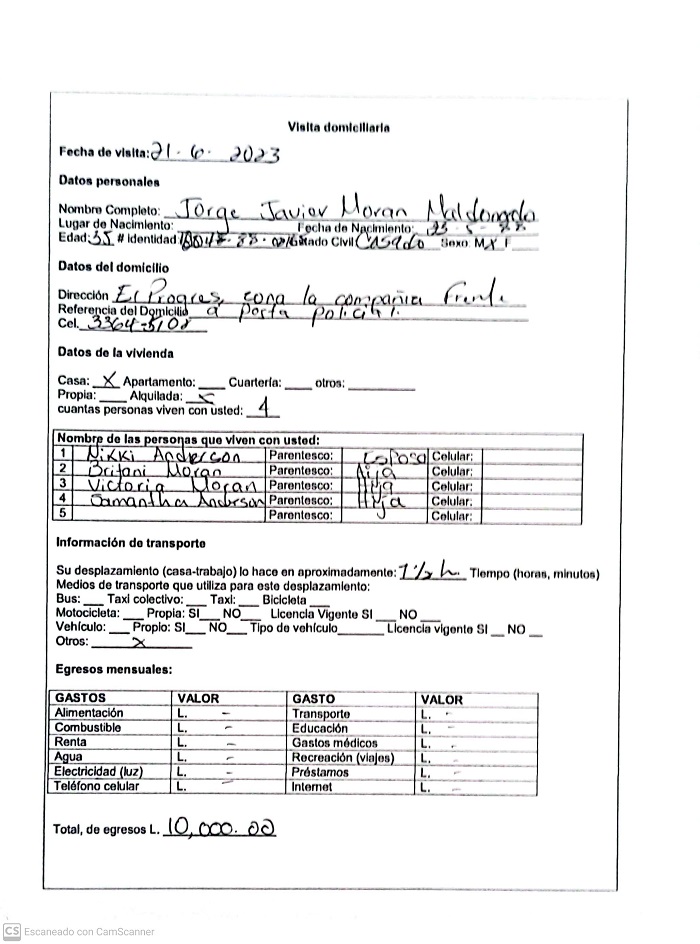 Visita domiciliaria
Fecha de visita: 21 · 6 · 2023
Datos personales
Nombre Completo: Jorge Javier Moran Maldonado
Lugar de Nacimiento: Fecha de Nacimiento: 23 - 5 - 88
Edad: 35 # Identidad Estado Civil Casado Sexo. M X F
Datos del domicilio
Dirección El Progreso, cona la compañia Frente
Referencia del Domicilio a posta policial.
Cel. 3364-5108
Datos de la vivienda
Casa: X Apartamento: ___ Cuartería: ___ otros: ___
Propia: ___ Alquilada: X
cuantas personas viven con usted: 4
Nombre de las personas que viven con usted:
1 Nikki Anderson Parentesco: Esposa Celular:
2 Britani Moran Parentesco: Hija Celular:
3 Victoria Moran Parentesco: Hija Celular:
4 Samantha Anderson Parentesco: Hija Celular:
5 Parentesco: Celular:
Información de transporte
Su desplazamiento (casa-trabajo) lo hace en aproximadamente: 1 1/2 h. Tiempo (horas, minutos)
Medios de transporte que utiliza para este desplazamiento:
Bus: ___ Taxi colectivo: ___ Taxi: ___ Bicicleta ___
Motocicleta: ___ Propia: SI ___ NO ___ Licencia Vigente SI ___ NO ___
Vehículo: ___ Propio: SI ___ NO ___ Tipo de vehículo ___ Licencia vigente SI __ NO __
Otros: X
Egresos mensuales:
GASTOS VALOR GASTO VALOR
Alimentación L. - Transporte L. -
Combustible L. - Educación L. -
Renta L. - Gastos médicos L. -
Agua L. - Recreación (viajes) L. -
Electricidad (luz) L. - Préstamos L. -
Teléfono celular L. - Internet L. -
Total, de egresos L. 10,000.00
CS Escaneado con CamScanner